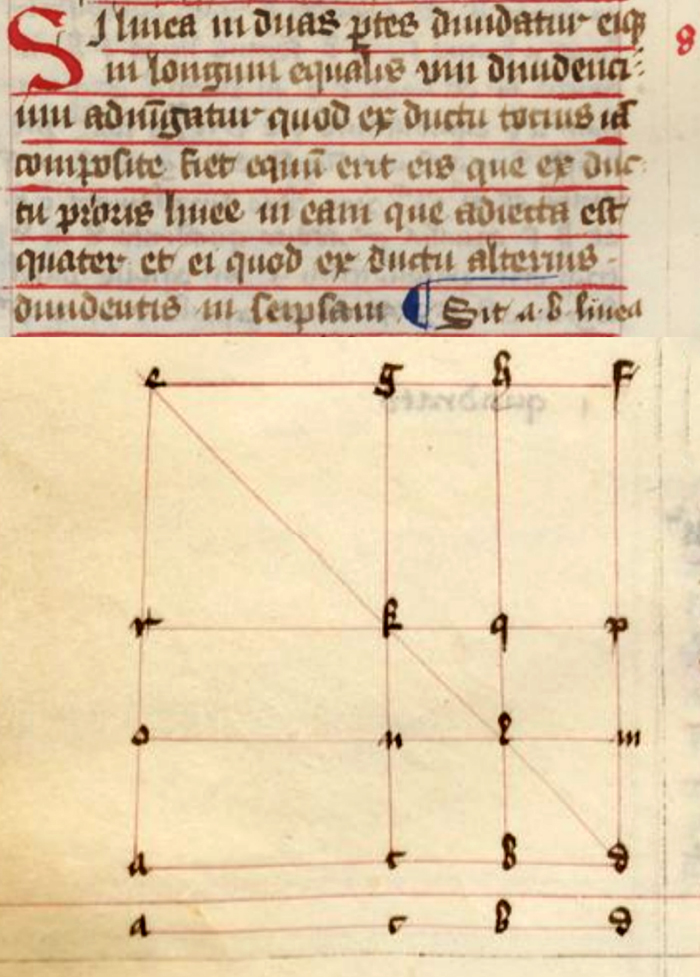 Si linea in duas ꝑtes diuidatur eiqꝫ 8
in longum equalis vni diuidenti
um adiūgatur quod ex ductu totius iā
composite fiet equū erit eis que ex duc
tu p'oris linee in eam que adiecta est
quater et ei quod ex ductu alterius
diuidentis in seipsam Sit a·b·linea
e g h f
r k q p
o n l m
a c b d
a c b d